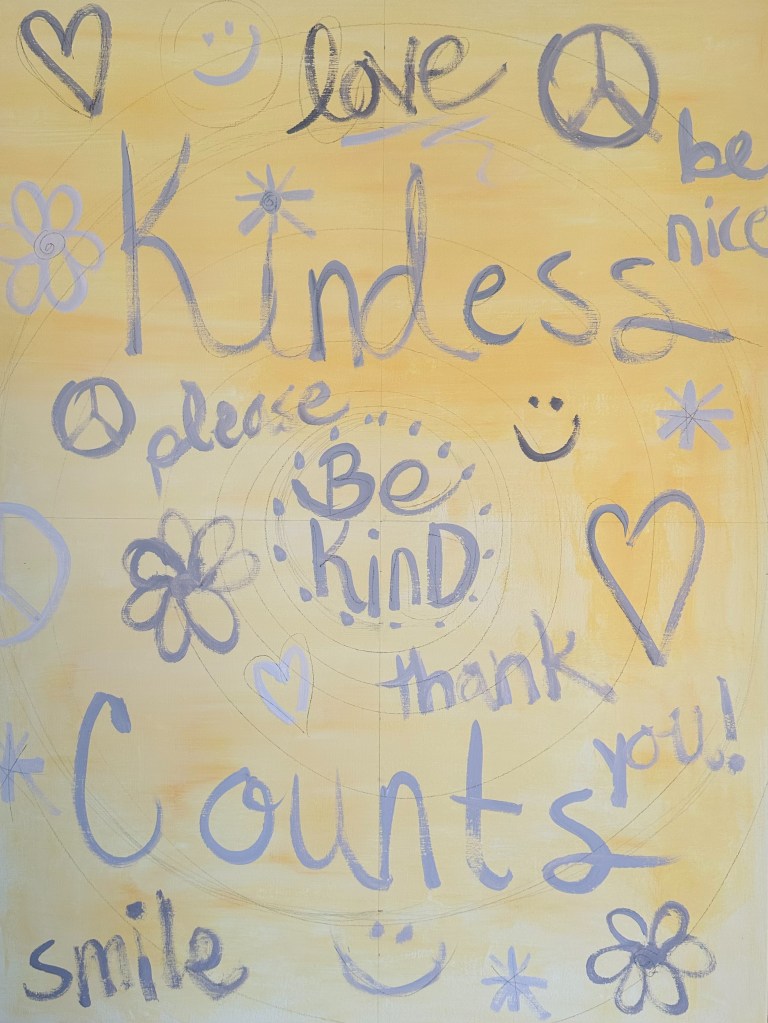 love
be
nice
Kindess
please
Be
KinD
thank
you!
Counts
smile